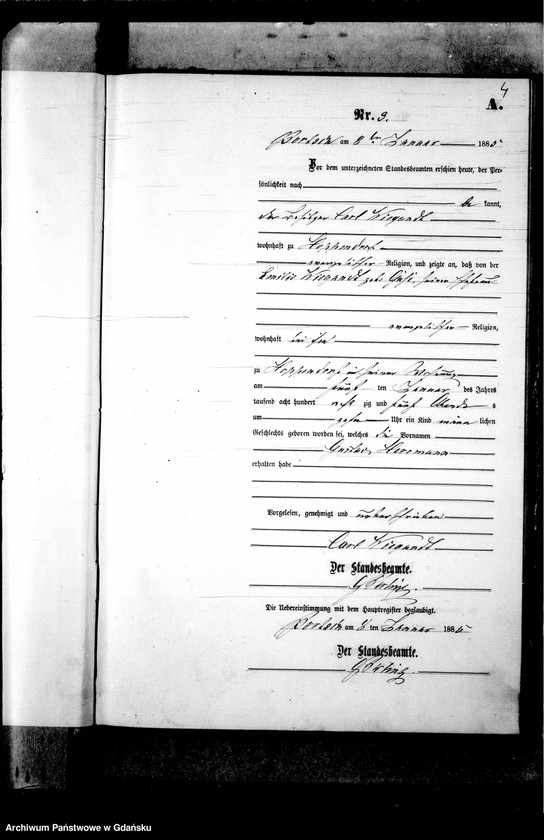 4
A.
Nr. 3.
am 8ten Januar 1885
Vor dem unterzeichneten Standesbeamten erschien heute, der Per-
sönlichkeit nach
be kannt,
der Besitzer Carl Wiegandt
wohnhaft zu Hoppendorf
evangelischer Religion, und zeigte an, daß von der
Emilie Wiegandt geb. seiner Ehefrau
evangelischer Religion,
wohnhaft bei ihm
zu Hoppendorf in seiner Wohnung
am fünf ten Januar des Jahres
tausend acht hundert acht zig und fünf Abends
um zehn Uhr ein Kind männ lichen
Geschlechts geboren worden sei, welches die Vornamen
Gustav Herrmann
erhalten habe
Vorgelesen, genehmigt und unterschrieben
Carl Wiegandt
Der Standesbeamte.
Die Uebereinstimmung mit dem Hauptregister beglaubigt.
am 8 ten Januar 1885
Der Standesbeamte.
Archiwum Państwowe w Gdańsku